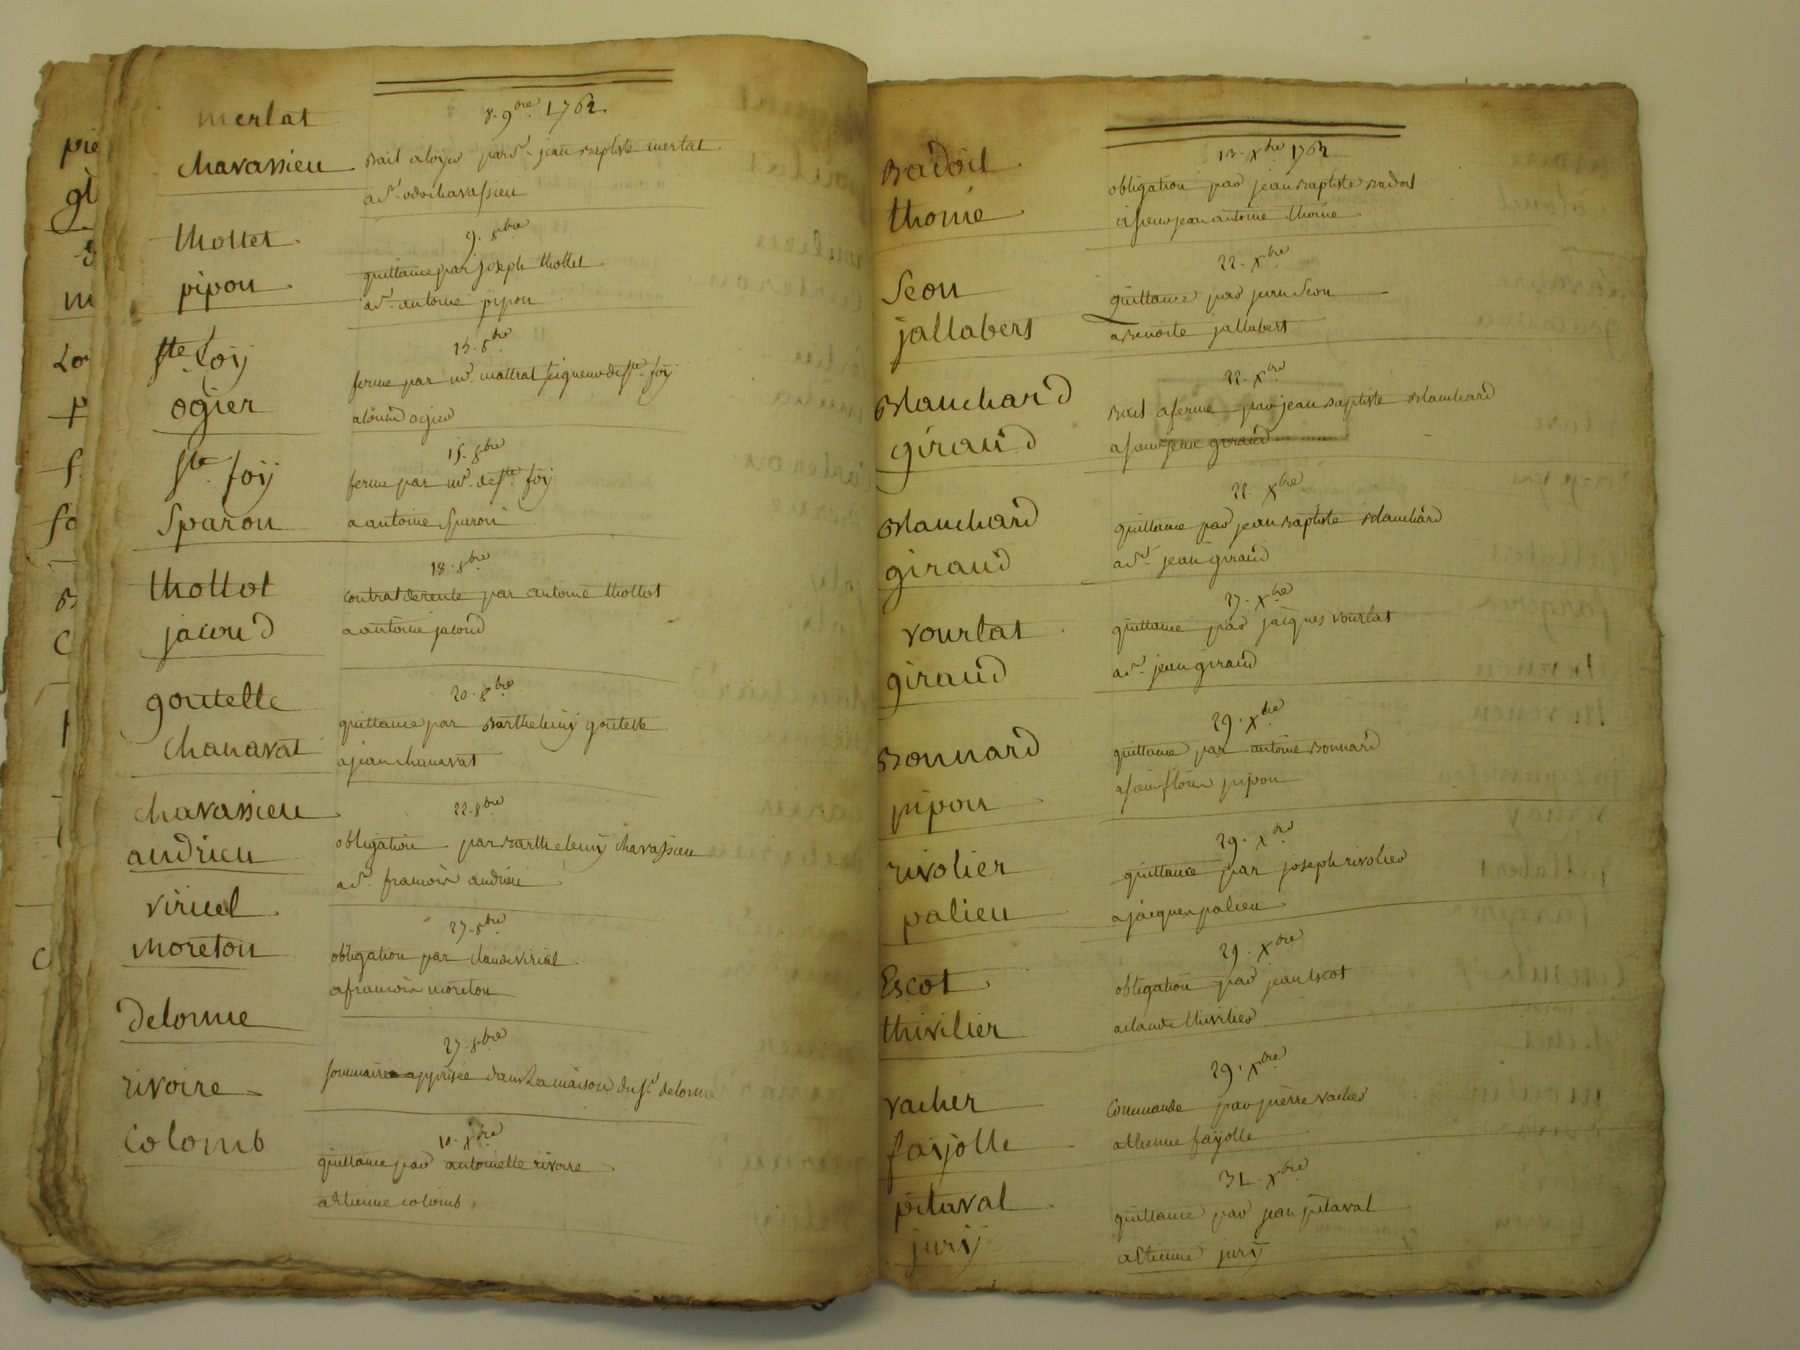 merlat
chavassieu
8. 9bre 1762.
Bail a loyer par sr. jean Baptiste merlat
a sr. odo chavassieu
thollet
pipon
9. 9bre
quittance par joseph thollet
a sr. antoine pipon
ste. foy
ogier
15. 9bre
ferme par mr. mattrat seigneur de ste. foy
ogier
ste. foy
Sparon
15. 9bre
ferme par mr. de ste. foy
a antoine Sparon
thollot
jacoud
18. 9bre
contrat de rente par antoine thollot
a antoine jacoud
goutelle
chanavat
20. 9bre
quittance par Barthelemy goutelle
a jean chanavat
chavassieu
andrieu
22. 9bre
obligation par Barthelemy chavassieu
a sr. francois andrieu
viricel
moreton
27. 9bre
obligation par claude viricel
a francois moreton
delorme
27. 9bre
sommaire apprisée dans la maison du sr. delorme
rivoire
colomb
10. Xbre
quittance par antoinette rivoire
a etienne colomb
Badoil
thome
13. Xbre 1762
obligation par jean Baptiste Badoil
a sieur jean antoine thome
Seon
jallabert
22. Xbre
quittance par jean Seon
a Benoite jallabert
Blanchard
giraud
22. Xbre
Bail a ferme par jean Baptiste Blanchard
a sieur jean giraud
Blanchard
giraud
22. Xbre
quittance par jean Baptiste Blanchard
a sr. jean giraud
vourlat
giraud
27. Xbre
quittance par jacques vourlat
a sr. jean giraud
Bonnard
pipon
29. Xbre
quittance par antoine Bonnard
pipon
rivolier
palieu
29. Xbre
quittance par joseph rivolier
a jacques palieu
Escot
thivilier
29. Xbre
obligation par jean Escot
a claude thivilier
vacher
fayolle
29. Xbre
commande par pierre vacher
a etienne fayolle
pitaval
jury
31. Xbre
quittance par jean pitaval
a Etienne jury